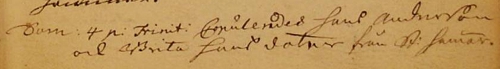 Dom: 4 p: Trinit: Copulerades Hans Andersson
och Brita Hans dotter från St: hamar.